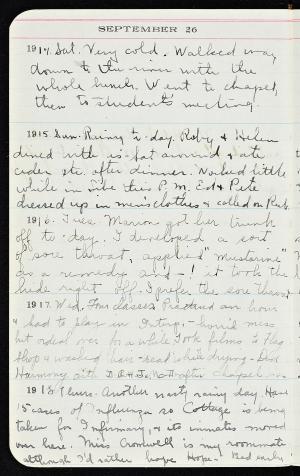 SEPTEMBER 26
1914 Sat. Very cold. Walked way
down to the river with the
whole bunch. Went to chapel,
then to students meeting.
1915 Sun. Rainy to-day. Roby & Helen
dined with us. Sat around & ate
cider etc. after dinner. Walked little
while in the P.M. Ed & Pete
dressed up in men's clothes & called on
1916. Tues. Marion got her trunk
off to-day. I developed a sort
of sore throat, applied "Musterine"
as a remedy and - ! it took the
hide right off. I prefer the sore throat
1917. Wed. Four classes. Practiced an hour
& had to play in
but over for a while. Took films to
Shop & washed hair - read while drying -
Harmony with after chapel
1918 Thurs. Another nasty rainy day. Have
15 cases of Influenza so Cottage is being
taken for Infirmary, & its inmates moved
over here. Miss Cromwell is my roommate
although I'd rather have Hope - Bed early